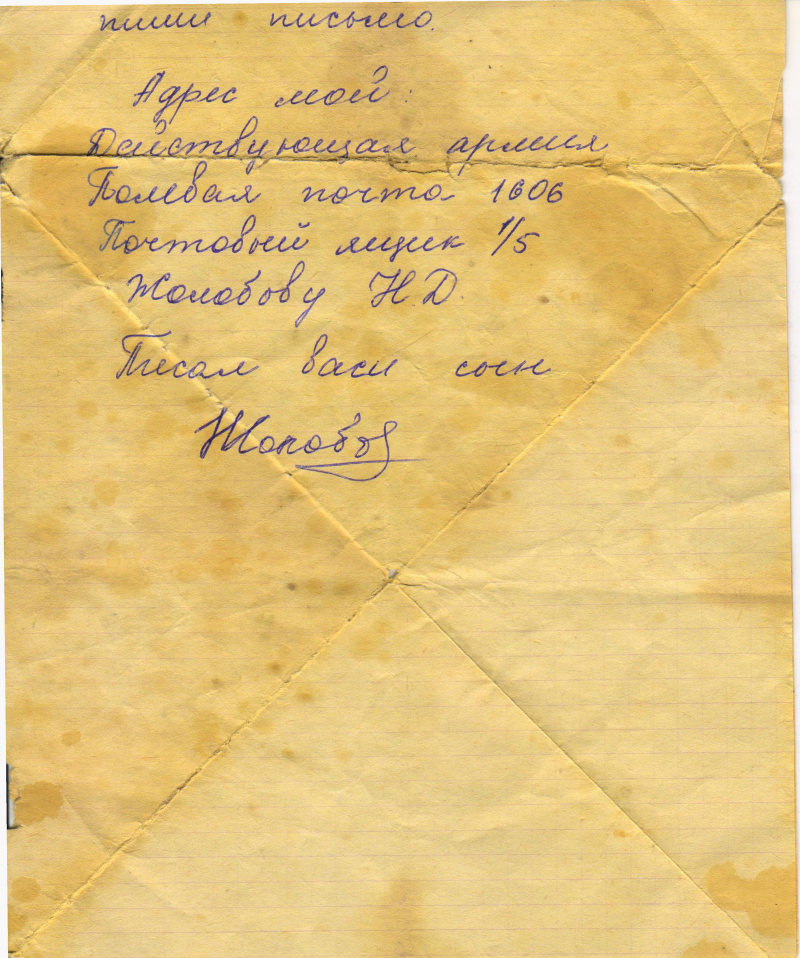 пиши письмо.
Адрес мой:
Действующая армия
Полевая почта 1606
Почтовый ящик 1/5
Жолобову Н.Д.
Писал ваш сын
Жолобов